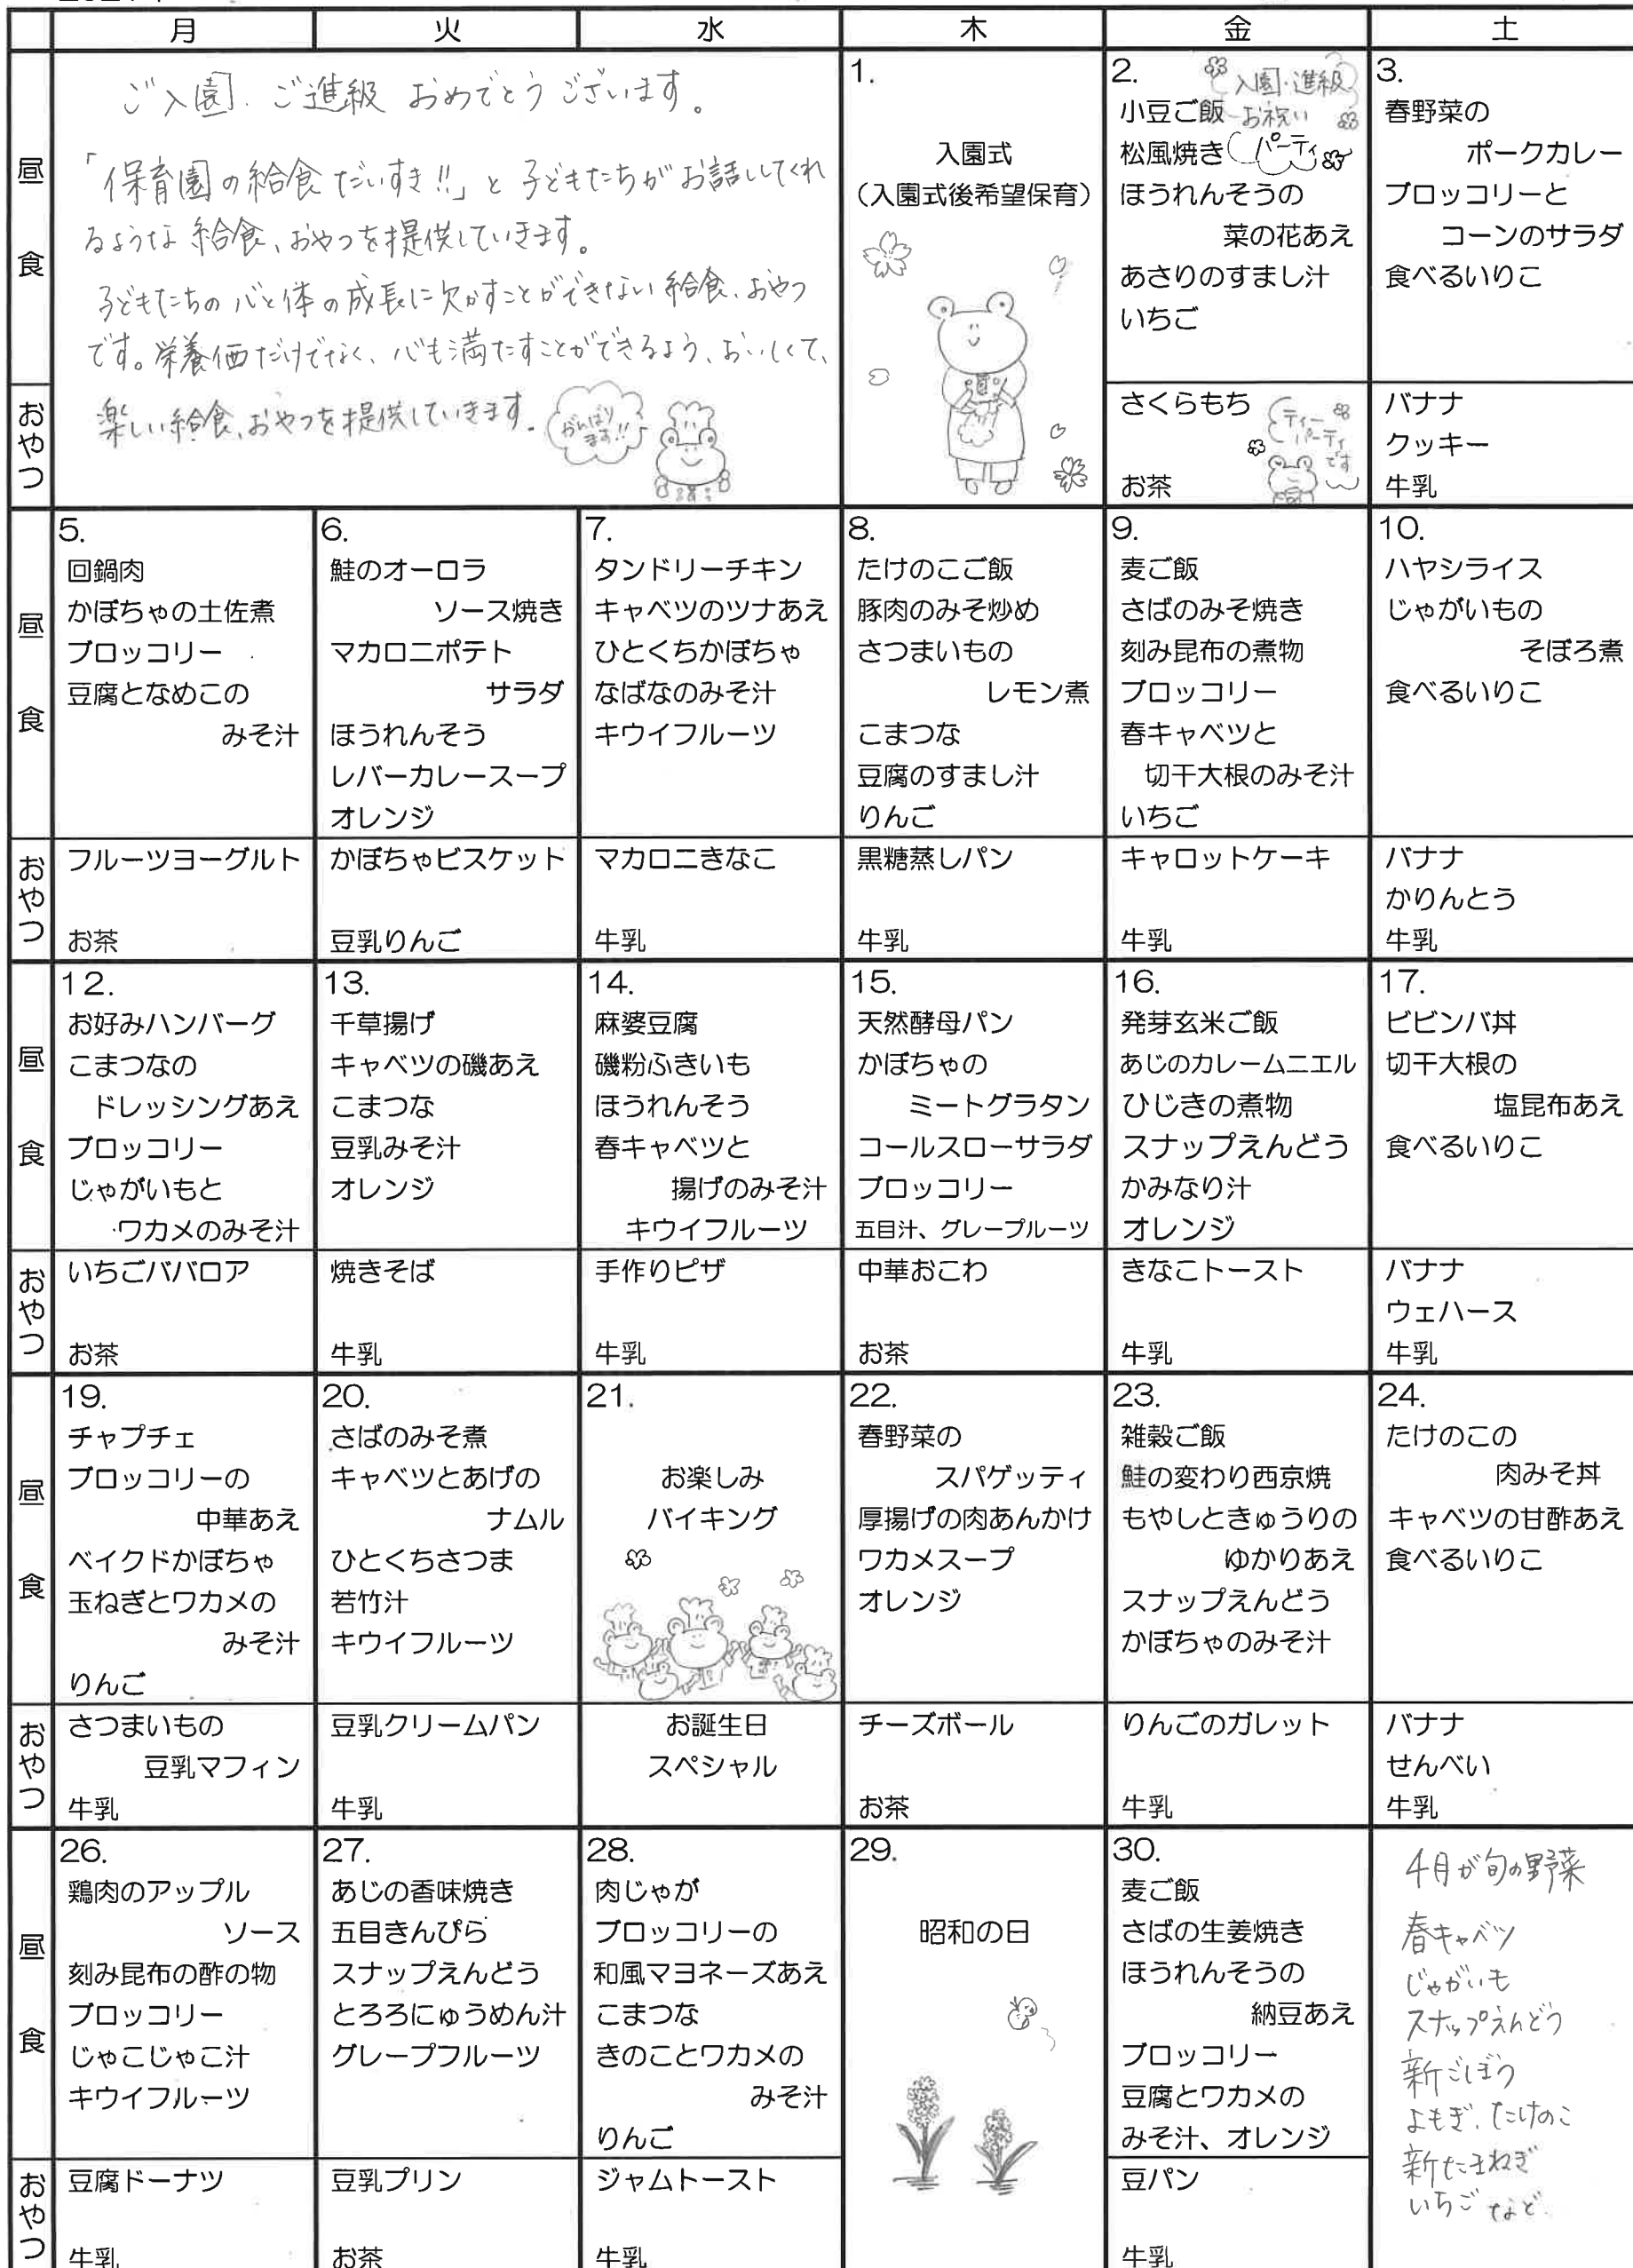 月 火 水 木 金 土
昼食
ご入園、ご進級 おめでとうございます。
「保育園の給食だいすき!!」と子どもたちがお話ししてくれ
るような給食、おやつを提供していきます。
子どもたちの心と体の成長に欠かすことができない給食、おやつ
です。栄養価だけでなく、心も満たすことができるよう、おいしくて、
楽しい給食、おやつを提供していきます。
がんばり
ます!!
1.
入園式
(入園式後希望保育)
2.
入園・進級
お祝い
パーティ
小豆ご飯
松風焼き
ほうれんそうの
菜の花あえ
あさりのすまし汁
いちご
3.
春野菜の
ポークカレー
ブロッコリーと
コーンのサラダ
食べるいりこ
おやつ
さくらもち
お茶
ティー
パーティ
です
バナナ
クッキー
牛乳
昼食
5.
回鍋肉
かぼちゃの土佐煮
ブロッコリー
豆腐となめこの
みそ汁
6.
鮭のオーロラ
ソース焼き
マカロニポテト
サラダ
ほうれんそう
レバーカレースープ
オレンジ
7.
タンドリーチキン
キャベツのツナあえ
ひとくちかぼちゃ
なばなのみそ汁
キウイフルーツ
8.
たけのこご飯
豚肉のみそ炒め
さつまいもの
レモン煮
こまつな
豆腐のすまし汁
りんご
9.
麦ご飯
さばのみそ焼き
刻み昆布の煮物
ブロッコリー
春キャベツと
切干大根のみそ汁
いちご
10.
ハヤシライス
じゃがいもの
そぼろ煮
食べるいりこ
おやつ
フルーツヨーグルト
お茶
かぼちゃビスケット
豆乳りんご
マカロニきなこ
牛乳
黒糖蒸しパン
牛乳
キャロットケーキ
牛乳
バナナ
かりんとう
牛乳
昼食
12.
お好みハンバーグ
こまつなの
ドレッシングあえ
ブロッコリー
じゃがいもと
ワカメのみそ汁
13.
千草揚げ
キャベツの磯あえ
こまつな
豆乳みそ汁
オレンジ
14.
麻婆豆腐
磯粉ふきいも
ほうれんそう
春キャベツと
揚げのみそ汁
キウイフルーツ
15.
天然酵母パン
かぼちゃの
ミートグラタン
コールスローサラダ
ブロッコリー
五目汁、グレープルーツ
16.
発芽玄米ご飯
あじのカレームニエル
ひじきの煮物
スナップえんどう
かみなり汁
オレンジ
17.
ビビンバ丼
切干大根の
塩昆布あえ
食べるいりこ
おやつ
いちごババロア
お茶
焼きそば
牛乳
手作りピザ
牛乳
中華おこわ
お茶
きなこトースト
牛乳
バナナ
ウェハース
牛乳
昼食
19.
チャプチェ
ブロッコリーの
中華あえ
ベイクドかぼちゃ
玉ねぎとワカメの
みそ汁
りんご
20.
さばのみそ煮
キャベツとあげの
ナムル
ひとくちさつま
若竹汁
キウイフルーツ
21.
お楽しみ
バイキング
22.
春野菜の
スパゲッティ
厚揚げの肉あんかけ
ワカメスープ
オレンジ
23.
雑穀ご飯
鮭の変わり西京焼
もやしときゅうりの
ゆかりあえ
スナップえんどう
かぼちゃのみそ汁
24.
たけのこの
肉みそ丼
キャベツの甘酢あえ
食べるいりこ
おやつ
さつまいもの
豆乳マフィン
牛乳
豆乳クリームパン
牛乳
お誕生日
スペシャル
チーズボール
お茶
りんごのガレット
牛乳
バナナ
せんべい
牛乳
昼食
26.
鶏肉のアップル
ソース
刻み昆布の酢の物
ブロッコリー
じゃこじゃこ汁
キウイフルーツ
27.
あじの香味焼き
五目きんぴら
スナップえんどう
とろろにゅうめん汁
グレープフルーツ
28.
肉じゃが
ブロッコリーの
和風マヨネーズあえ
こまつな
きのことワカメの
みそ汁
りんご
29.
昭和の日
30.
麦ご飯
さばの生姜焼き
ほうれんそうの
納豆あえ
ブロッコリー
豆腐とワカメの
みそ汁、オレンジ
4月が旬の野菜
春キャベツ
じゃがいも
スナップえんどう
新ごぼう
よもぎ、たけのこ
新たまねぎ
いちご など
おやつ
豆腐ドーナツ
牛乳
豆乳プリン
お茶
ジャムトースト
牛乳
豆パン
牛乳